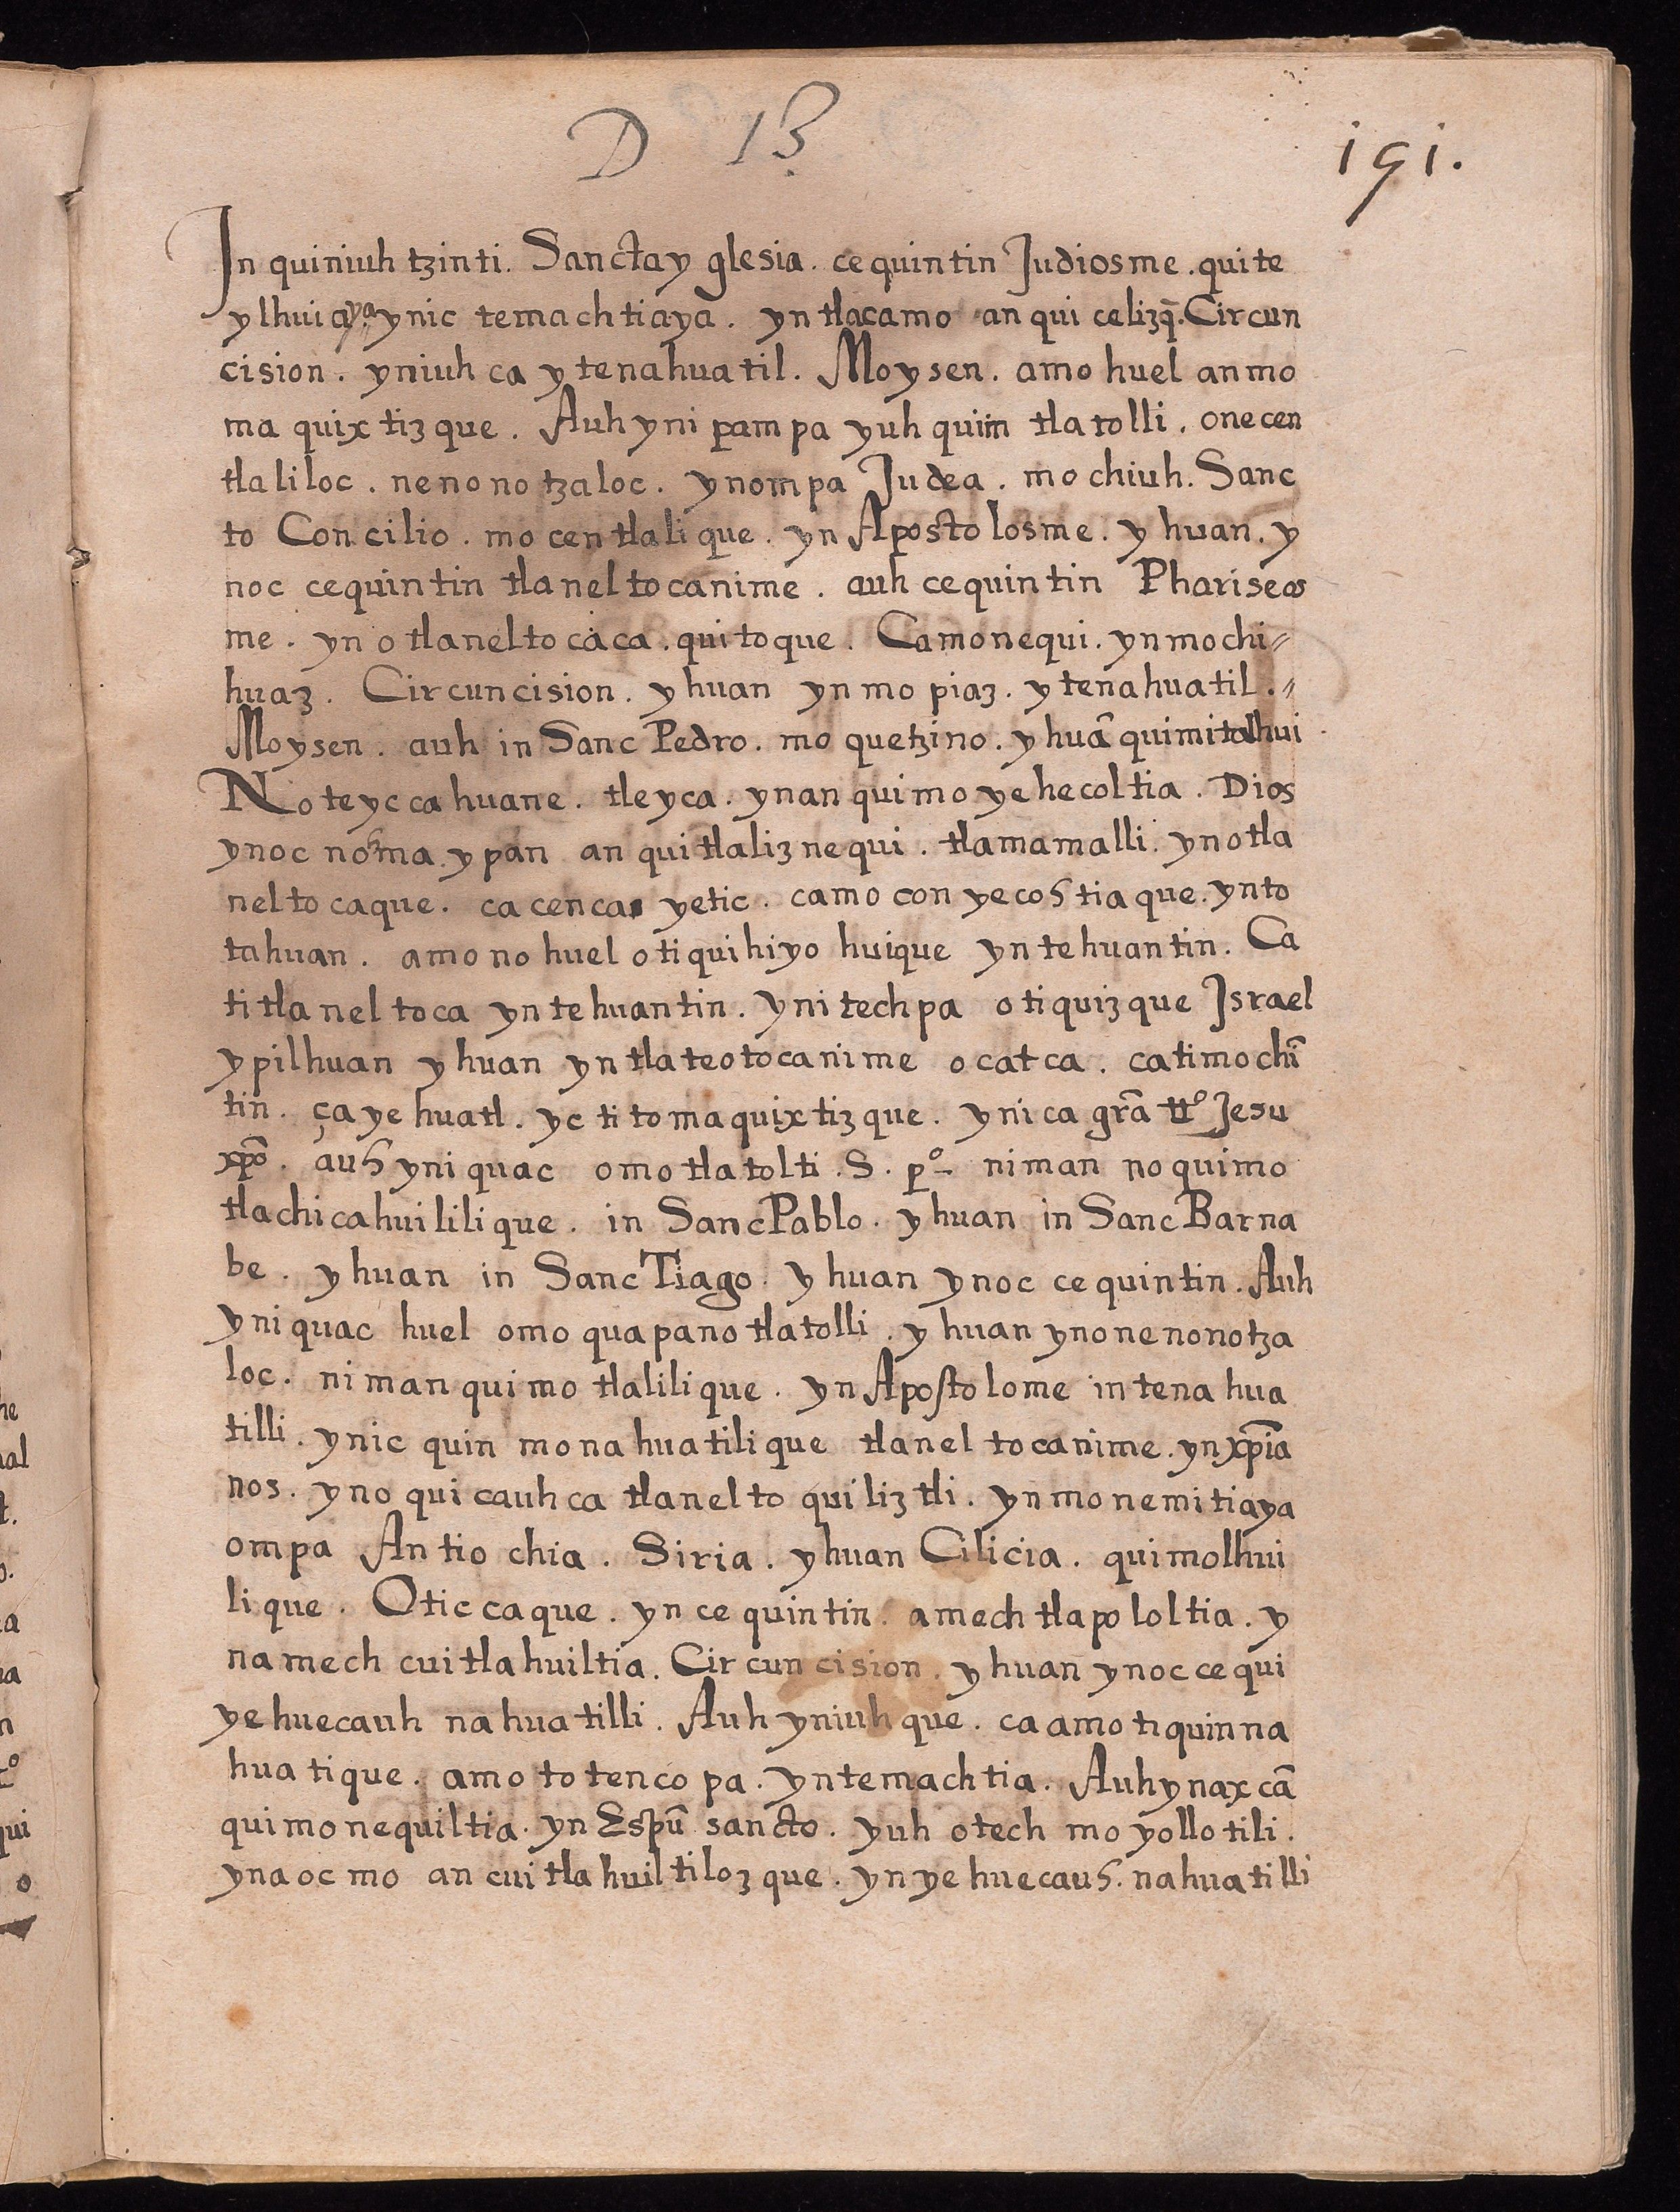 D 13
191.
In quiniuh tzinti. Sanctay glesia. cequintin Judiosme. quite
ylhuiaya ynic temachtiaya. yn tlacamo an qui celizq̃. Circun
cision. yniuh ca y tenahuatil. Moysen. amo huel anmo
ma quix tiz que. Auh yni pam pa yuh quiin tlatolli. onecen
tlaliloc. nenonotzaloc. ynompa Judea. mo chiuh. Sanc
to Concilio. mo cen tlali que. yn Apostolosme. y huan. y
noc cequintin tlaneltocanime. auh cequintin Phariseos
me. yn o tlaneltocaca. quitoque. Camonequi. ynmochi=
huaz. Circuncision. y huan yn mo piaz. y tenahuatil.=
Moysen. auh in Sanc Pedro. mo quetzino. y huã quimitalhui
No teyccahuane. tleyca. ynan quimo yehecoltia. Dios
ynoc noma. y pan an qui tlaliz nequi. tlamamalli. ynotla
neltocaque. ca cenca yetic. camo con yecohtiaque. ynto
tahuan. amo no huel otiquihiyo huique yn tehuantin. Ca
titlaneltoca yn tehuantin. ynitechpa otiquizque Israel
ypilhuan y huan yn tlateotocanime ocatca. catimochĩ
tin. ça yehuatl. yc titomaquixtizque. ynica gr̃a ttº Jesu
xp̃o. auh yniquac omotlatolti. S. pº niman no quimo
tlachicahuililique. in Sanc Pablo. y huan in Sanc Barna
be. y huan in Sanc Tiago. y huan ynoc cequintin. Auh
yniquac huel omo quapano tlatolli. y huan ynonenonotza
loc. niman quimo tlalilique. yn Apostolome in tenahua
tilli. ynic quin monahuatilique tlaneltocanime. yn xp̃ia
nos. yno qui cauhca tlaneltoquiliztli. yn monemitiaya
ompa Antiochia. Siria. y huan Cilicia. quimolhui
lique. Oticcaque. yn cequintin. amechtlapololtia. y
namech cuitlahuiltia. Circuncision. y huan ynoc cequi
ye huecauh nahuatilli. Auh yniuhque. ca amo tiquinna
huatique. amo totencopa. yntemachtia. Auh ynaxcã
quimonequiltia. yn Espũ sancto. yuh otech moyollotili.
ynaocmo ancuitlahuiltilozque. yn ye huecauh. nahuatilli